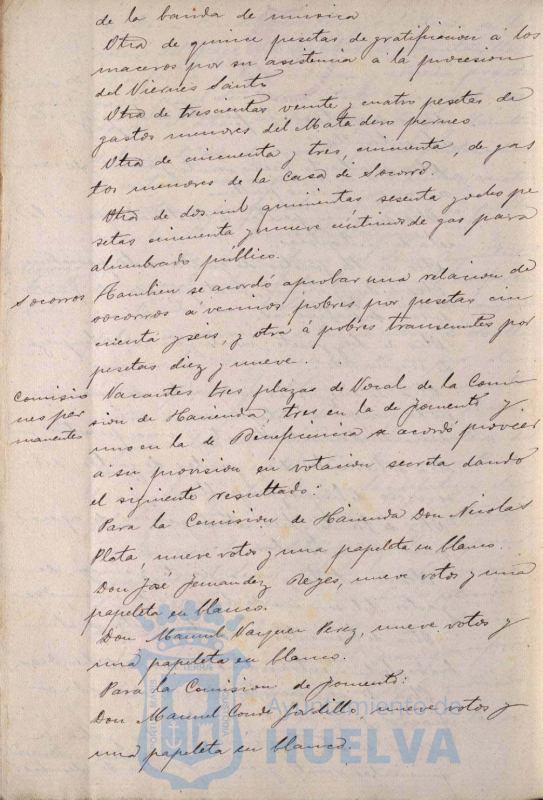 de la banda de musica
Otra de quince pesetas de gratificacion á los
maceros por su asistencia á la procesion
del Viernes Santo
Otra de trescientas veinte y cuatro pesetas de
gastos menores del Matadero
Otra de cincuenta y tres, cincuenta, de gas
tos menores de la Casa de Socorro.
Otra de dos mil quinientas sesenta y ocho pe
setas cincuenta y nueve céntimos de gas para
alumbrado público.
Socorros
Tambien se acordó aprobar una relacion de
socorros á vecinos pobres por pesetas cin
cuenta y seis, y otra á pobres transeuntes por
pesetas diez y nueve.
Comisio
nes per
manentes
Vacantes tres plazas de Vocal de la Comi
sion de Hacienda, tres en la de Fomento y
uno en la de Beneficencia se acordó proveer
á su provision en votacion secreta dando
el siguiente resultado:
Para la Comision de Hacienda Don Nicolas
Plata, nueve votos y una papeleta en blanco.
Don José Fernandez Reyes, nueve votos y una
papeleta en blanco.
Don Manuel Vazquez Perez, nueve votos y
una papeleta en blanco.
Para la Comision de Fomento:
Don Manuel Conde Gordillo, nueve votos y
una papeleta en blanco.
Ayuntamiento de
HUELVA